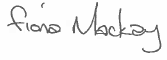 Fiona Mackay